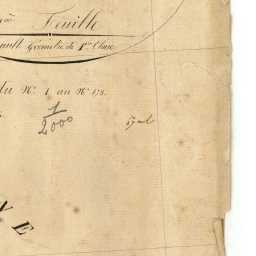 Feuille
Géomètre de 1re Classe
du No. 1 au No. 178.
1
2000
N E